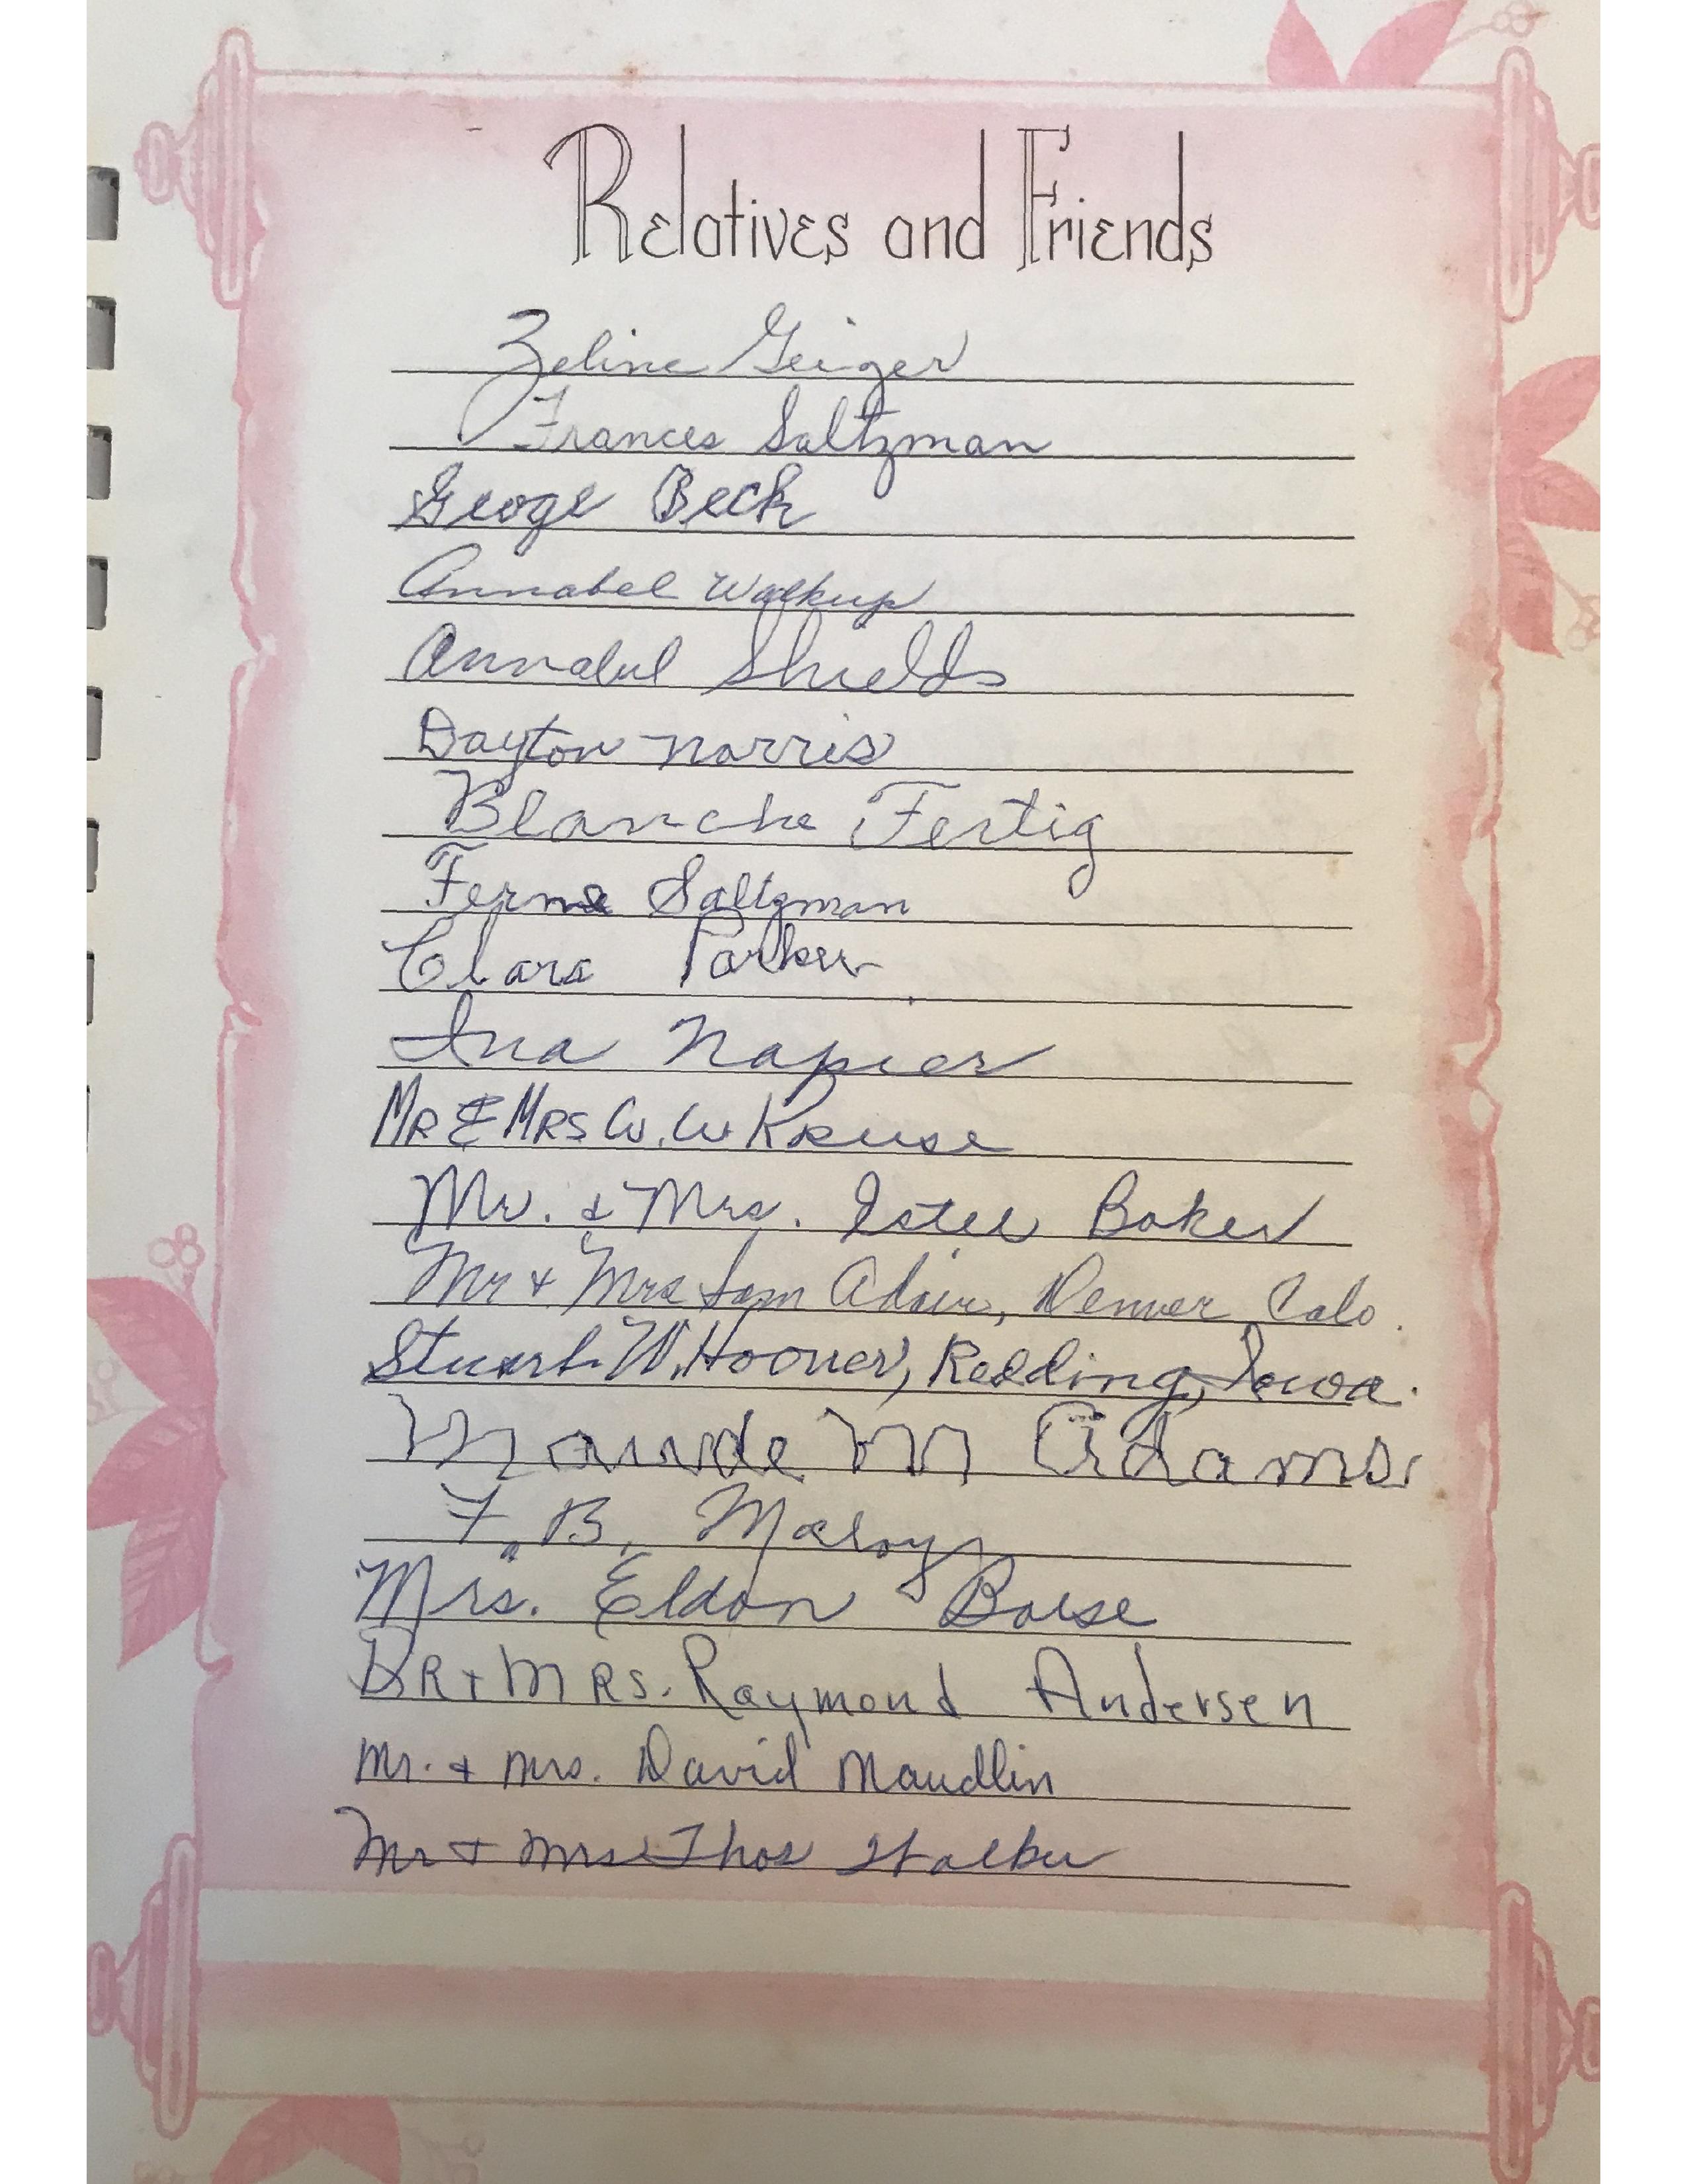 Relatives and Friends
Zeline Geiger
Frances Saltzman
Geoge Beck
Annabel Walkup
Annabel Shields
Dayton Norris
Blanche Fertig
Ferne Saltzman
Clara Parker
Ina Napier
MR & MRS W. W Kruse
Mr. & Mrs. Baker
Mr & Mrs Sam Adair, Denver Colo.
Stuart W. Hoover, Redding, Iowa.
Maude M Adams
F. B.
Mrs. Eldon Boise
DR + MRS. Raymond Andersen
Mr. & Mrs. David Maudlin
Mr & Mrs Thos Stalker